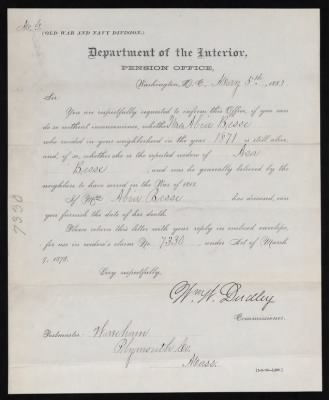 (OLD WAR AND NAVY DIVISION.)
Department of the Interior,
PENSION OFFICE,
Washington, D. C., May 5th, 1883
Sir:
You are respectfully requested to inform this Office, if you can
do so without inconvenience, whether Mrs Abia Besse
who resided in your neighborhood in the year 1871 is still alive,
and, if so, whether she is the reputed widow of Asa
Besse, and was he generally believed by the
neighbors to have served in the War of 1812.
If Mrs Abia Besse has deceased, can
you furnish the date of her death.
Please return this letter with your reply in enclosed envelope,
for use in widow's claim No. 7330, under Act of March
9, 1878.
Very respectfully,
Wm W. Dudley
Commissioner.
Postmaster Wareham
Plymouth Co
Mass.
7330